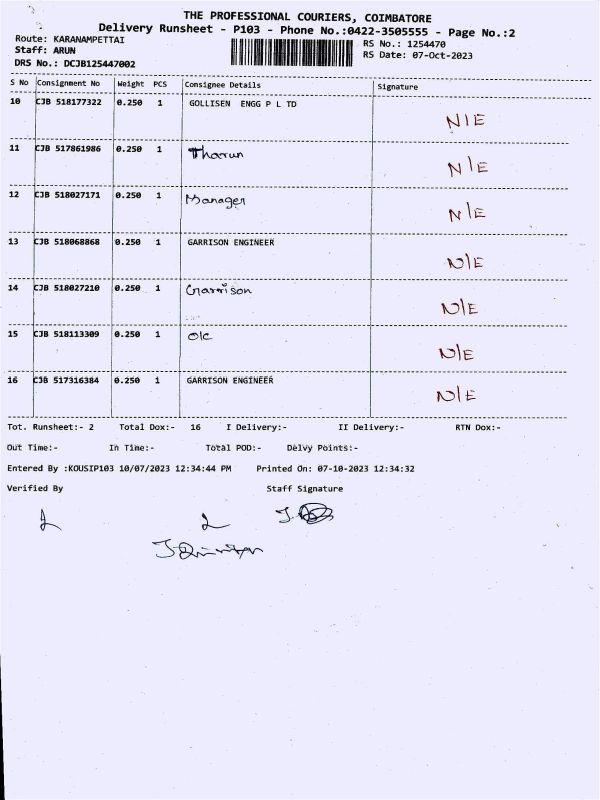 THE PROFESSIONAL COURIERS, COIMBATORE
Delivery Runsheet - P103 - Phone No.:0422-3505555 - Page No.:2
Route: KARANAMPETTAI RS No.: 1254470
Staff: ARUN RS Date: 07-Oct-2023
DRS No.: DCJB125447002
S No Consignment No Weight PCS Consignee Details Signature
10 CJB 518177322 0.250 1 GOLLISEN ENGG P L TD N/E
11 CJB 517861986 0.250 1 Tharun N/E
12 CJB 518027171 0.250 1 Manager N/E
13 CJB 518068868 0.250 1 GARRISON ENGINEER N/E
14 CJB 518027210 0.250 1 Garrison N/E
15 CJB 518113309 0.250 1 O/c N/E
16 CJB 517316384 0.250 1 GARRISON ENGINEER N/E
Tot. Runsheet:- 2 Total Dox:- 16 I Delivery:- II Delivery:- RTN Dox:-
Out Time:- In Time:- Total POD:- Delvy Points:-
Entered By :KOUSIP103 10/07/2023 12:34:44 PM Printed On: 07-10-2023 12:34:32
Verified By Staff Signature